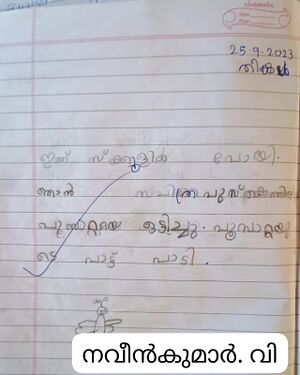 classmate
25.9.2023
തിങ്കൾ
ഇന്ന് സ്ക്കൂളിൽ പോയി.
ഞാൻ സചിത്ര പുസ്തകത്തിൽ
പൂമ്പാറ്റയെ ഒട്ടിച്ചു. പൂമ്പാറ്റയു
ടെ പാട്ട് പാടി.
നവീൻകുമാർ. വി